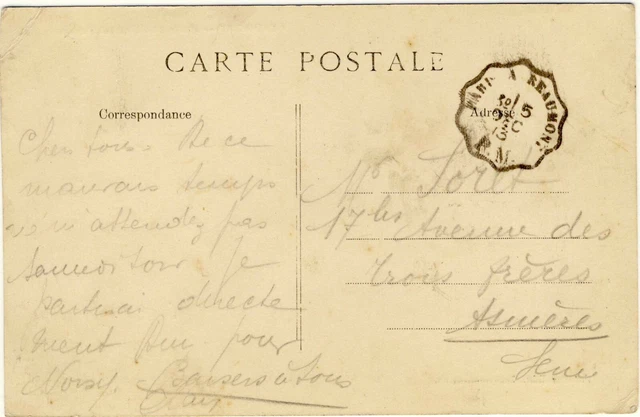 CARTE POSTALE
Correspondance
Adresse
PARIS A BEAUMONT
5
DEC
13
Cher tous. De ce
mauvais temps
ne m'attendez pas
samedi soir je
partirai directe
ment pour
Noisy. Baisers à tous
Mr Loret
17 bis Avenue des
trois frères
Asnières
Seine